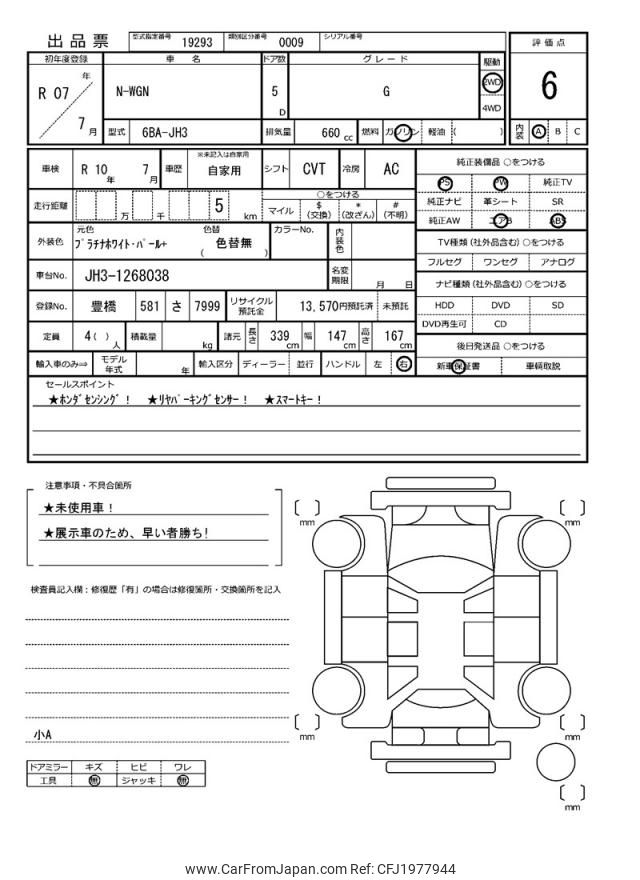 出品票 型式指定番号 19293 類別区分番号 0009 シリアル番号
評価点
6
内装 A B C
初年度登録 車名 ドア数 グレード 駆動
R 07 年 7 月 N-WGN 5 D G 2WD 4WD
型式 6BA-JH3 排気量 660 cc 燃料 ガソリン 軽油 ( )
車検 R 10 年 7 月 車歴 ※未記入は自家用 自家用 シフト CVT 冷房 AC
走行距離 万 千 5 km ○をつける
マイル $ (交換) * (改ざん) # (不明)
外装色 元色 プラチナホワイト・パール+ 色替 ( 色替無 ) カラーNo. 内装色
車台No. JH3-1268038 名変期限 月 日
登録No. 豊橋 581 さ 7999 リサイクル預託金 13,570円預託済 未預託
定員 4( ) 人 積載量 kg 諸元 長さ 339 cm 幅 147 cm 高さ 167 cm
輸入車のみ⇒ モデル年式 年 輸入区分 ディーラー 並行 ハンドル 左 右
純正装備品 ○をつける
PS PW 純正TV
純正ナビ 革シート SR
純正AW エアB ABS
TV種類 (社外品含む) ○をつける
フルセグ ワンセグ アナログ
ナビ種類 (社外品含む) ○をつける
HDD DVD SD
DVD再生可 CD
後日発送品 ○をつける
新車保証書 車輌取説
セールスポイント
★ホンダセンシング! ★リヤパーキングセンサー! ★スマートキー!
注意事項・不具合箇所
★未使用車!
★展示車のため、早い者勝ち!
検査員記入欄:修復歴「有」の場合は修復箇所・交換箇所を記入
小A
ドアミラー キズ ヒビ ワレ
工具 無 ジャッキ 無
mm
mm
mm
mm
mm
www.CarFromJapan.com Ref: CFJ1977944